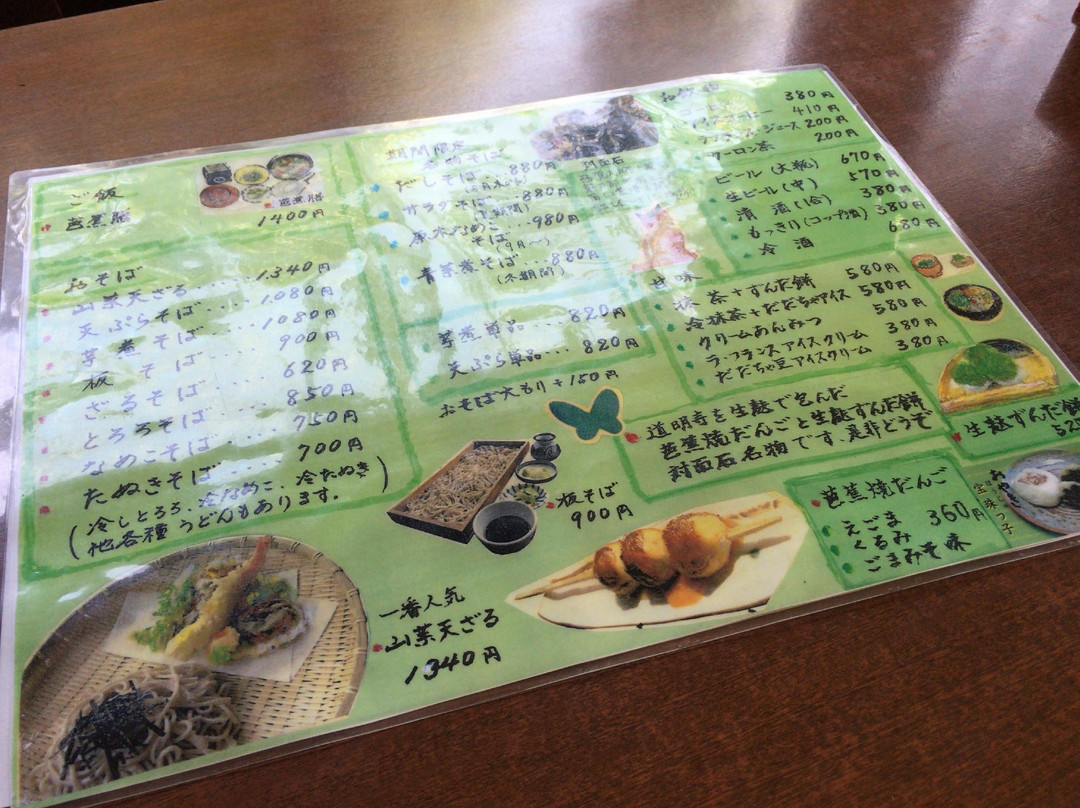 ご飯
芭蕉膳
芭蕉膳
1400円
おそば
山菜天ざる....1340円
天ぷらそば.....1080円
芋煮そば.....1080円
板そば.....900円
ざるそば.....620円
とろろそば.....850円
なめこそば.....750円
たぬきそば.....700円
(冷しとろろ、冷なめこ、冷たぬき
他各種うどんもあります。)
期間限定
だしそば...880円
サラダそば...880円
(夏期間)
原木なめこ...980円
そば(9月〜)
青菜煮そば...880円
(冬期間)
芋煮単品.....820円
天ぷら単品...820円
おそば大もり+150円
対面石
380円
410円
ジュース 200円
ウーロン茶 200円
ビール(大瓶) 670円
生ビール(中) 570円
清酒(1合) 380円
もっきり(コップ酒) 380円
冷酒 680円
甘味
抹茶+ずんだ餅 580円
冷抹茶+だだちゃアイス 580円
クリームあんみつ 580円
ラ・フランスアイスクリーム 380円
だだちゃ豆アイスクリーム 380円
道明寺を生麩で包んだ
芭蕉焼だんごと生麩ずんだ餅
対面石名物です.是非どうぞ
生麩ずんだ餅
板そば
900円
芭蕉焼だんご
えごま 360円
くるみ
ごまみそ味
一番人気
山菜天ざる
1340円